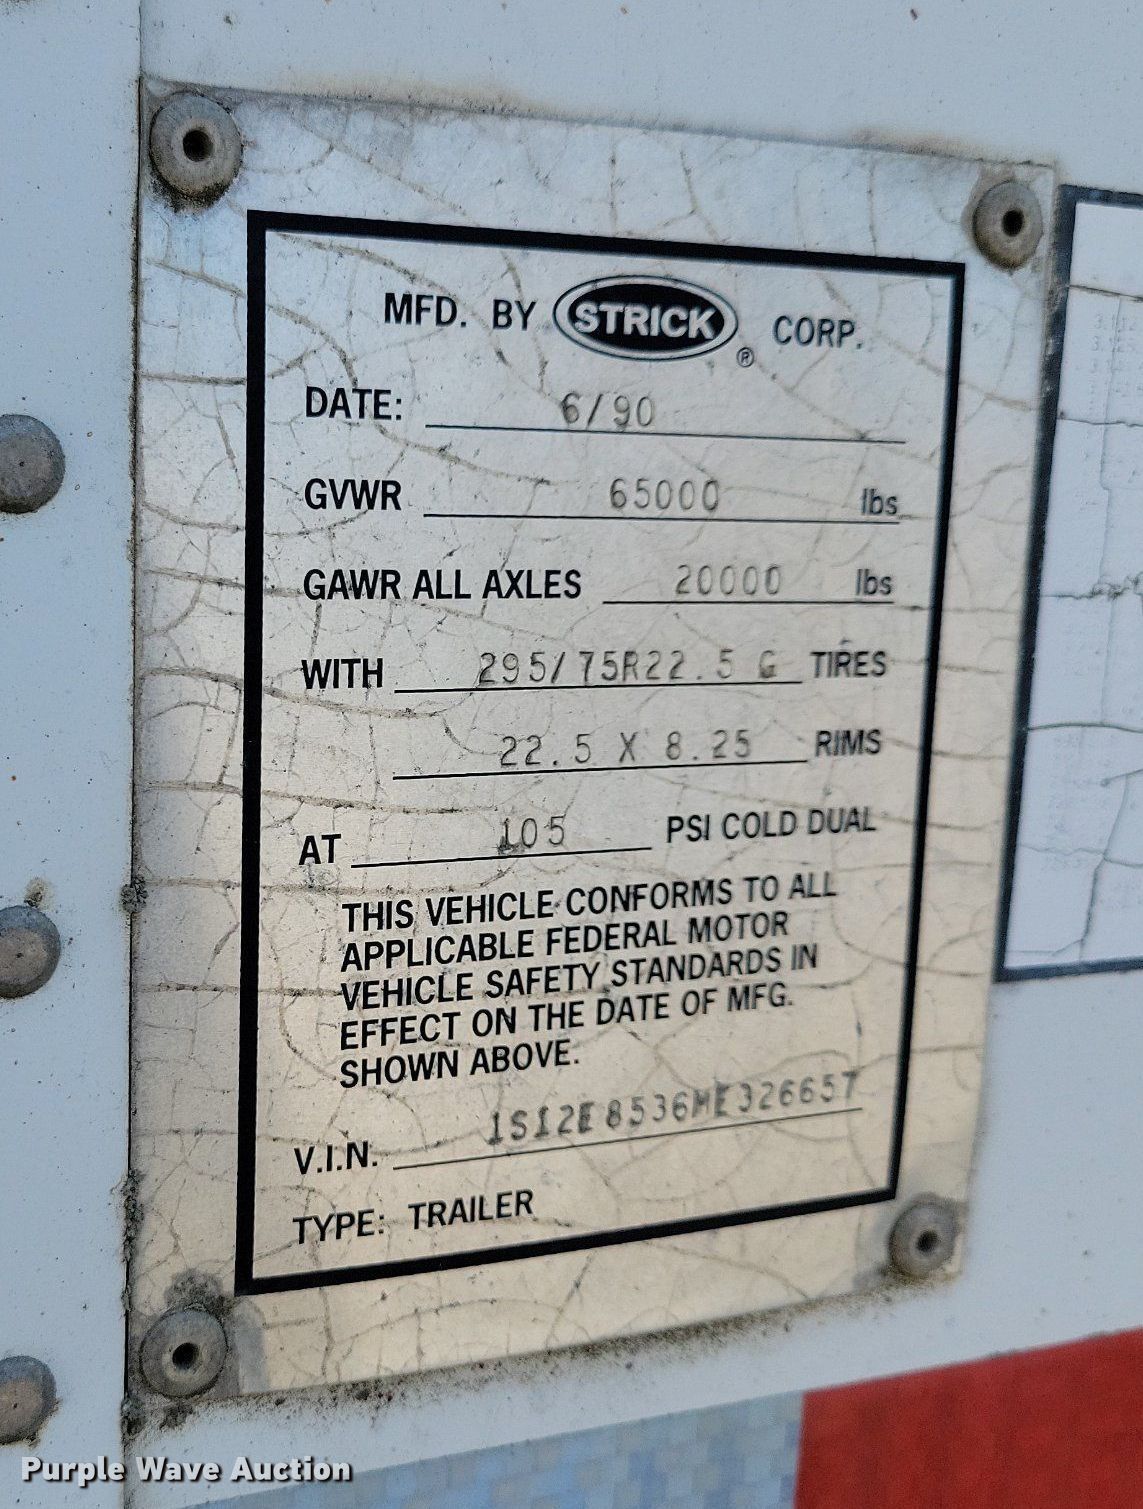 MFD. BY STRICK ® CORP.
DATE: 6/90
GVWR 65000 lbs
GAWR ALL AXLES 20000 lbs
WITH 295/75R22.5 G TIRES
22.5 X 8.25 RIMS
AT 105 PSI COLD DUAL
THIS VEHICLE CONFORMS TO ALL
APPLICABLE FEDERAL MOTOR
VEHICLE SAFETY STANDARDS IN
EFFECT ON THE DATE OF MFG.
SHOWN ABOVE.
V.I.N. 1S12E8536ME326657
TYPE: TRAILER
Purple Wave Auction